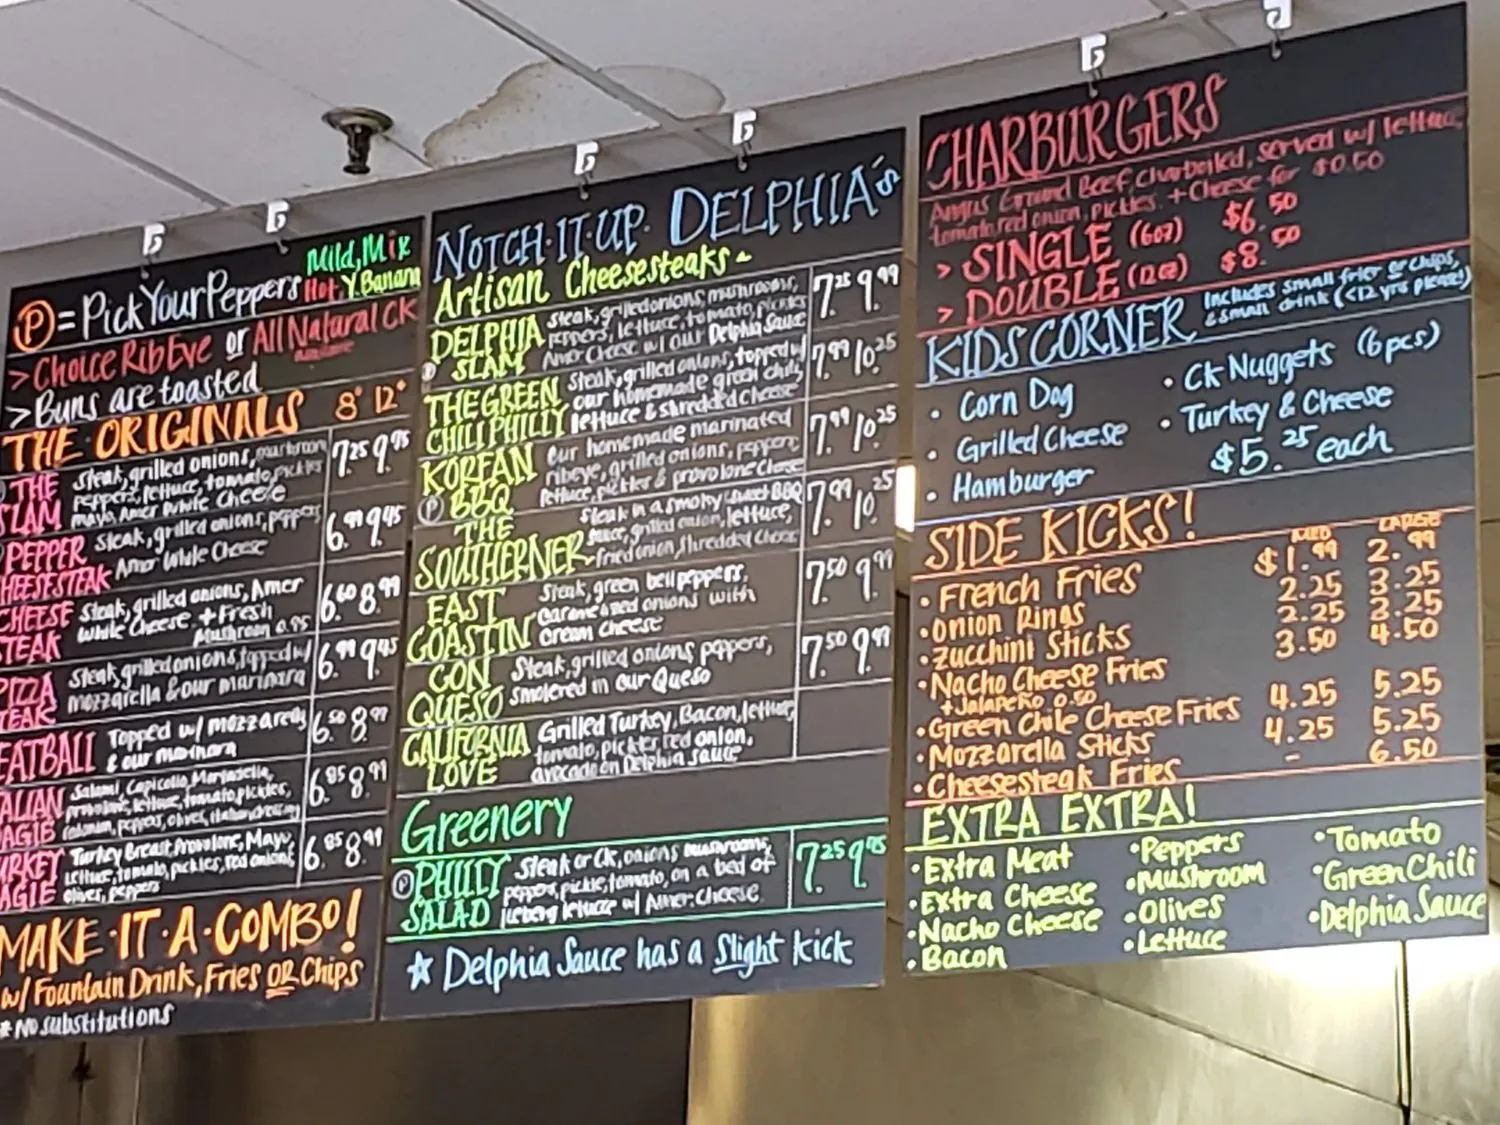 Mild, Mix
Ⓟ = Pick Your Peppers Hot, Y. Banana
> Choice RibEye or All Natural CK
> Buns are toasted
THE ORIGINALS 8" 12"
THE SLAM
Steak, grilled onions, mushroom
peppers, lettuce, tomato, pickles
mayo, Amer White Cheese
7.25 9.95
PEPPER
HEESESTEAK
Steak, grilled onions, peppers
Amer White Cheese
6.99 9.45
CHEESE
STEAK
Steak, grilled onions, Amer
White Cheese + Fresh
Mushroom 0.95
6.60 8.99
PIZZA
TEAK
Steak, grilled onions, topped w/
mozzarella & our marinara
6.99 9.45
EATBALL
Topped w/ mozzarella
& our marinara
6.50 8.99
ALIAN
AGIE
Salami, Capicolla, Mortadella,
provolone, lettuce, tomato, pickles,
peppers, olives,
6.85 8.99
URKEY
AGIE
Turkey Breast, Provolone, Mayo,
lettuce, tomato, pickles, red onions,
olives, peppers
6.85 8.99
MAKE·IT·A·COMBO!
w/ Fountain Drink, Fries OR Chips
* No substitutions
NOTCH·IT·UP· DELPHIA's
Artisan Cheesesteaks~
DELPHIA
Ⓟ SLAM
Steak, grilled onions, mushrooms,
peppers, lettuce, tomato, pickles
Amer Cheese w/ our Delphia Sauce
7.25 9.99
THE GREEN
CHILI PHILLY
Steak, grilled onions, topped w/
our homemade green chili,
lettuce & shredded Cheese
7.99 10.25
KOREAN
Ⓟ BBQ
Our homemade marinated
ribeye, grilled onions, peppers,
lettuce, pickles & provolone cheese
7.99 10.25
THE
SOUTHERNER
Steak in a smoky sweet BBQ
sauce, grilled onion, lettuce,
fried onion, shredded cheese
7.99 10.25
EAST
COASTIN'
Steak, green bell peppers,
caramelized onions with
cream cheese
7.50 9.99
CON
QUESO
Steak, grilled onions, peppers,
smothered in our Queso
7.50 9.99
CALIFORNIA
LOVE
Grilled Turkey, Bacon, lettuce,
tomato, pickles, red onion,
avocado on Delphia sauce
Greenery
Ⓟ PHILLY
SALAD
Steak or CK, onions, mushrooms,
peppers, pickle, tomato, on a bed of
iceberg lettuce w/ Amer. cheese
7.25 9.95
☆ Delphia Sauce has a slight kick
CHARBURGERS
Angus Ground Beef, Charboiled, served w/ lettuce,
tomato, red onion, pickles. + Cheese for $0.50
> SINGLE (6oz) $6.50
> DOUBLE (12oz) $8.50
KIDS CORNER Includes small fries or chips,
& small drink (<12 yrs please)
• Corn Dog
• Grilled Cheese
• Hamburger
• CK Nuggets (6 pcs)
• Turkey & Cheese
$5.25 each
SIDE KICKS! MED LARGE
• French Fries $1.99 2.99
• Onion Rings 2.25 3.25
• Zucchini Sticks 2.25 3.25
• Nacho Cheese Fries 3.50 4.50
+ Jalapeño 0.50
• Green Chile Cheese Fries 4.25 5.25
• Mozzarella Sticks 4.25 5.25
• Cheesesteak Fries - 6.50
EXTRA EXTRA!
• Extra Meat
• Extra Cheese
• Nacho Cheese
• Bacon
• Peppers
• Mushroom
• Olives
• Lettuce
• Tomato
• Green Chili
• Delphia Sauce